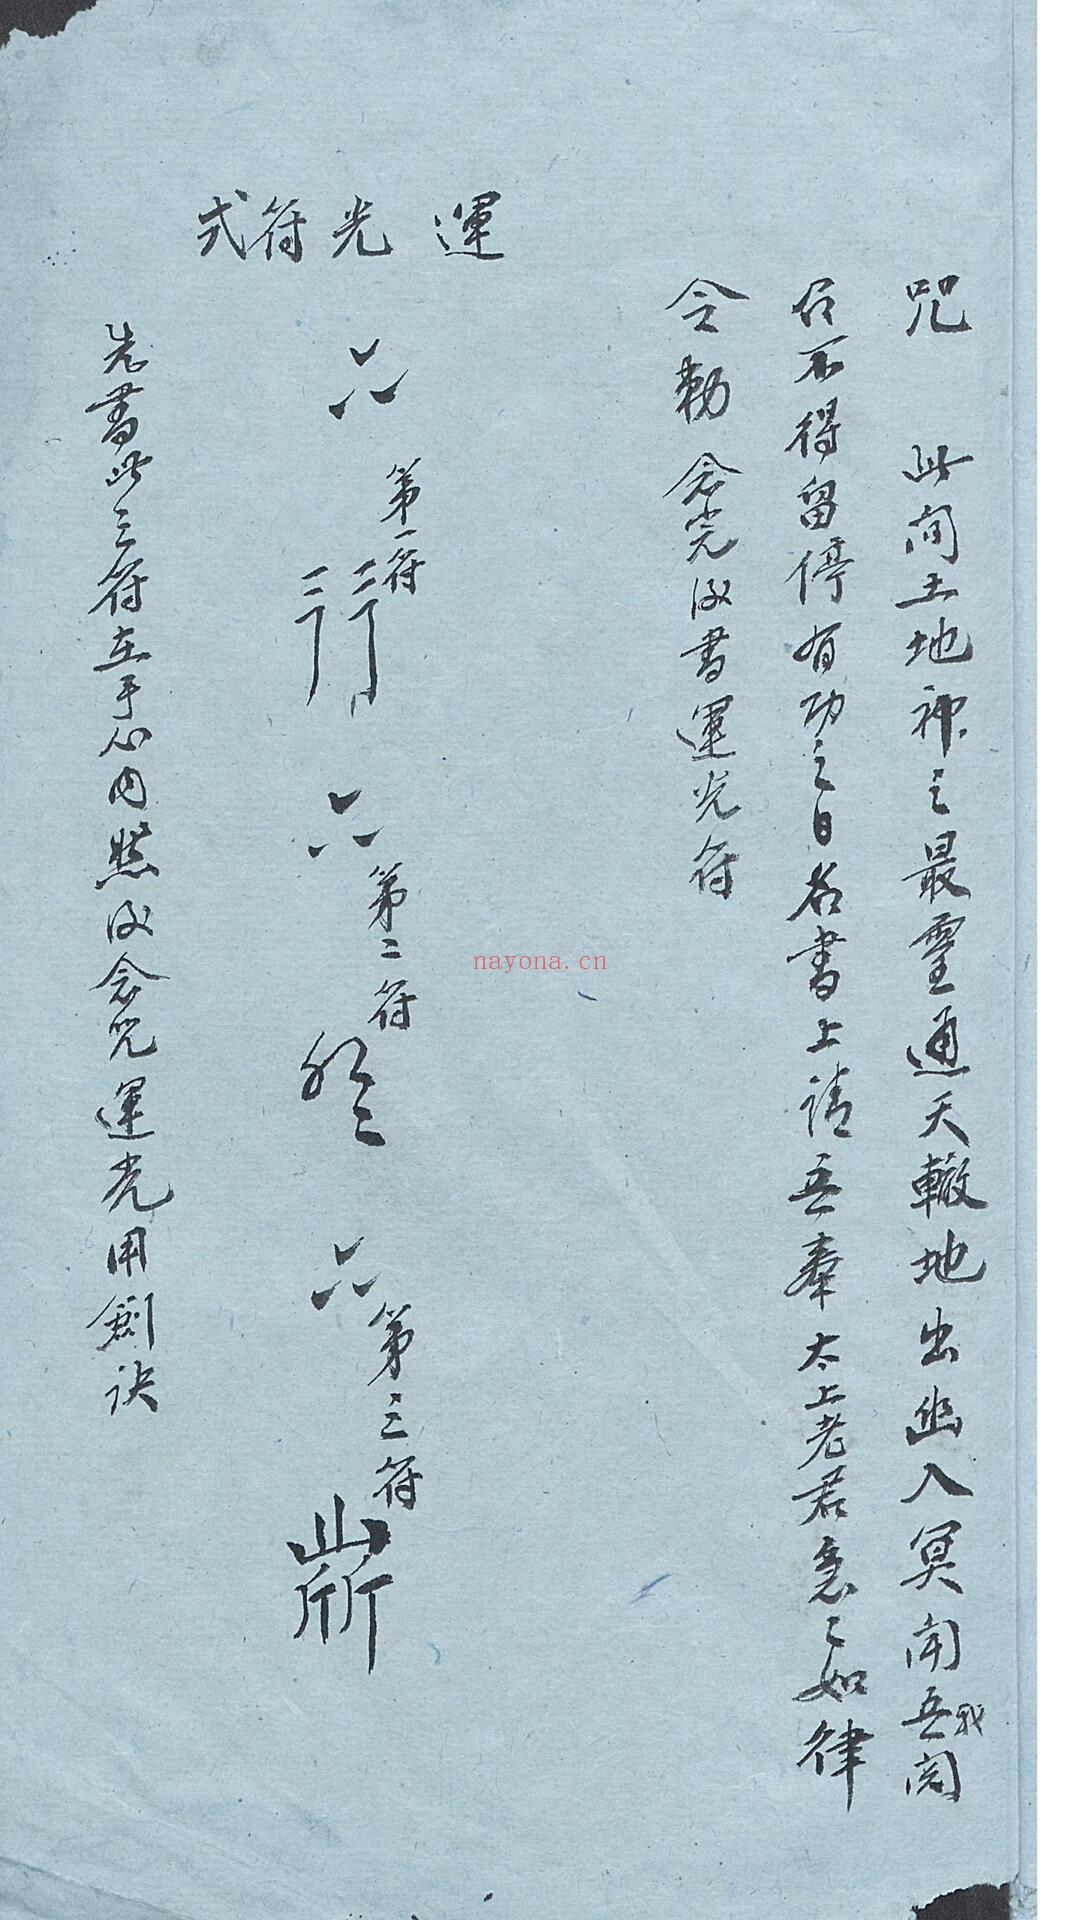 咒 此间土地神之最靈通天轍地出幽入冥闻吾我闻
召不得留停有功之日名書上請吾奉太上老君急〻如律
令勅 念完後書運光符
運光符式
第一符
第二符
第三符
先書此三符在手心内然後念咒運光用劍诀
nayona.cn